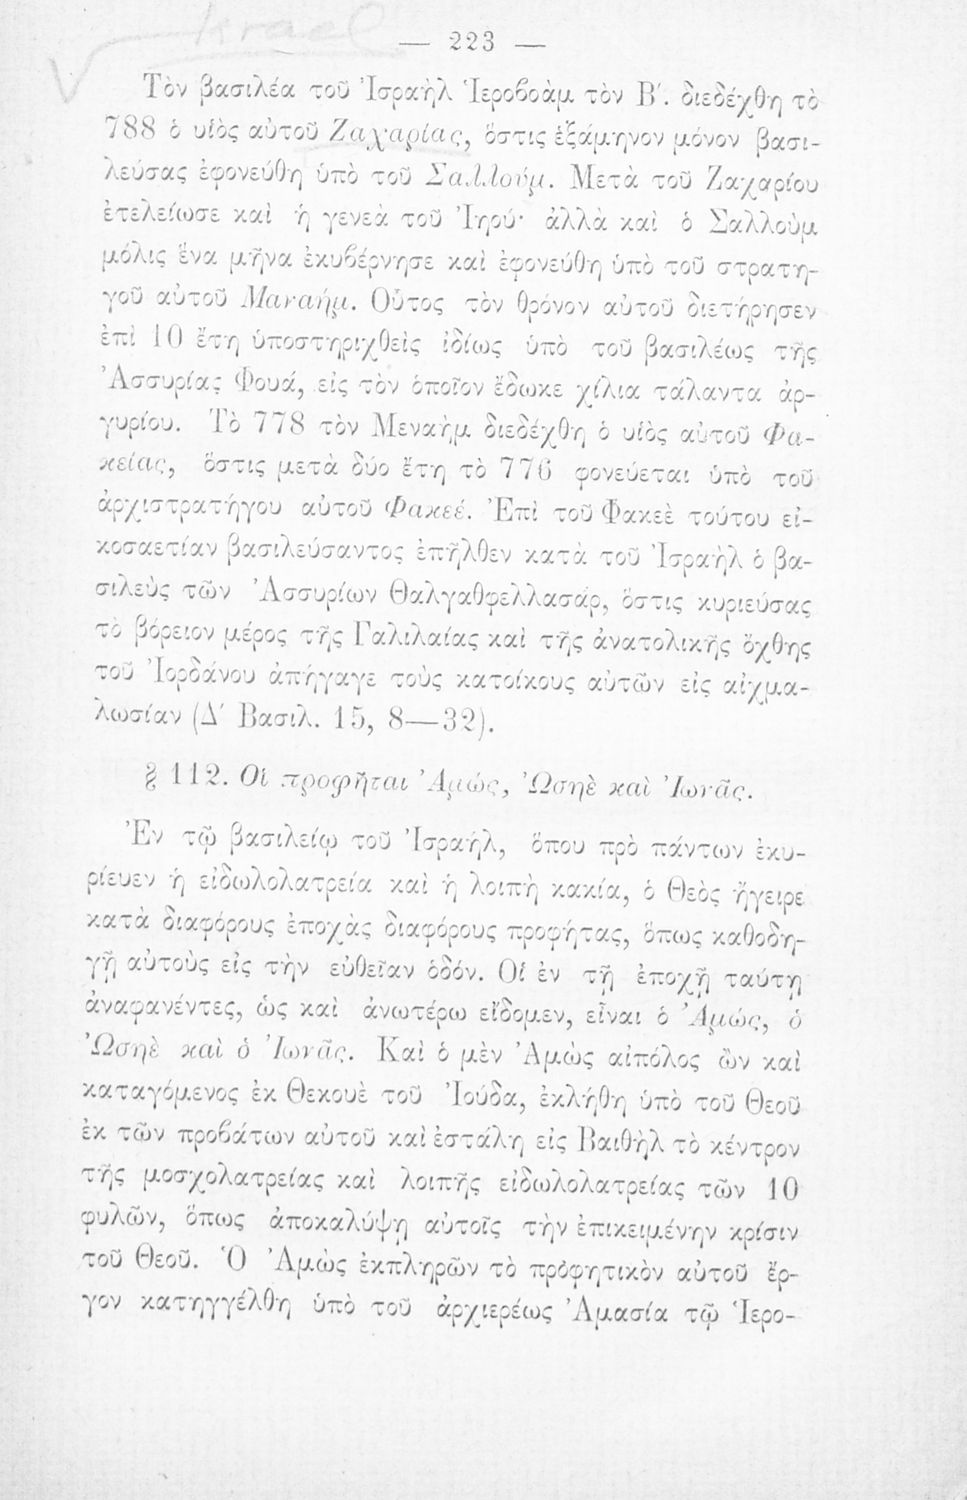 Israel
— 223 —
Τὸν βασιλέα τοῦ Ἰσραὴλ Ἱεροβοὰμ τὸν Β΄. διεδέχθη τὸ
788 ὁ υἱὸς αὐτοῦ Ζαχαρίας, ὅστις ἑξάμηνον μόνον βασι-
λεύσας ἐφονεύθη ὑπὸ τοῦ Σαλλούμ. Μετὰ τοῦ Ζαχαρίου
ἐτελείωσε καὶ ἡ γενεὰ τοῦ Ἰηρύ· ἀλλὰ καὶ ὁ Σαλλοὺμ
μόλις ἕνα μῆνα ἐκυβέρνησε καὶ ἐφονεύθη ὑπὸ τοῦ στρατη-
γοῦ αὐτοῦ Μαναήμ. Οὗτος τὸν θρόνον αὐτοῦ διετήρησεν
ἐπὶ 10 ἔτη ὑποστηριχθεὶς ἰδίως ὑπὸ τοῦ βασιλέως τῆς
Ἀσσυρίας Φουά, εἰς τὸν ὁποῖον ἔδωκε χίλια τάλαντα ἀρ-
γυρίου. Τὸ 778 τὸν Μεναὴμ διεδέχθη ὁ υἱὸς αὐτοῦ Φα-
κείας, ὅστις μετὰ δύο ἔτη τὸ 776 φονεύεται ὑπὸ τοῦ
ἀρχιστρατήγου αὐτοῦ Φακεέ. Ἐπὶ τοῦ Φακεὲ τούτου εἰ-
κοσαετίαν βασιλεύσαντος ἐπῆλθεν κατὰ τοῦ Ἰσραὴλ ὁ βα-
σιλεὺς τῶν Ἀσσυρίων Θαλγαθφελλασάρ, ὅστις κυριεύσας
τὸ βόρειον μέρος τῆς Γαλιλαίας καὶ τῆς ἀνατολικῆς ὄχθης
τοῦ Ἰορδάνου ἀπήγαγε τοὺς κατοίκους αὐτῶν εἰς αἰχμα-
λωσίαν (Δ΄ Βασιλ. 15, 8—32).
§ 112. Οἱ προφῆται Ἀμώς, Ὠσηὲ καὶ Ἰωνᾶς.
Ἐν τῷ βασιλείῳ τοῦ Ἰσραήλ, ὅπου πρὸ πάντων ἐκυ-
ρίευεν ἡ εἰδωλολατρεία καὶ ἡ λοιπὴ κακία, ὁ Θεὸς ἤγειρε
κατὰ διαφόρους ἐποχὰς διαφόρους προφήτας, ὅπως καθοδη-
γῇ αὐτοὺς εἰς τὴν εὐθεῖαν ὁδόν. Οἱ ἐν τῇ ἐποχῇ ταύτῃ
ἀναφανέντες, ὡς καὶ ἀνωτέρω εἴδομεν, εἶναι ὁ Ἀμώς, ὁ
Ὠσηὲ καὶ ὁ Ἰωνᾶς. Καὶ ὁ μὲν Ἀμὼς αἰπόλος ὢν καὶ
καταγόμενος ἐκ Θεκουὲ τοῦ Ἰούδα, ἐκλήθη ὑπὸ τοῦ Θεοῦ
ἐκ τῶν προβάτων αὐτοῦ καὶ ἐστάλη εἰς Βαιθὴλ τὸ κέντρον
τῆς μοσχολατρείας καὶ λοιπῆς εἰδωλολατρείας τῶν 10
φυλῶν, ὅπως ἀποκαλύψῃ αὐτοῖς τὴν ἐπικειμένην κρίσιν
τοῦ Θεοῦ. Ὁ Ἀμὼς ἐκπληρῶν τὸ πρόφητικὸν αὐτοῦ ἔρ-
γον κατηγγέλθη ὑπὸ τοῦ ἀρχιερέως Ἀμασία τῷ Ἱερο-